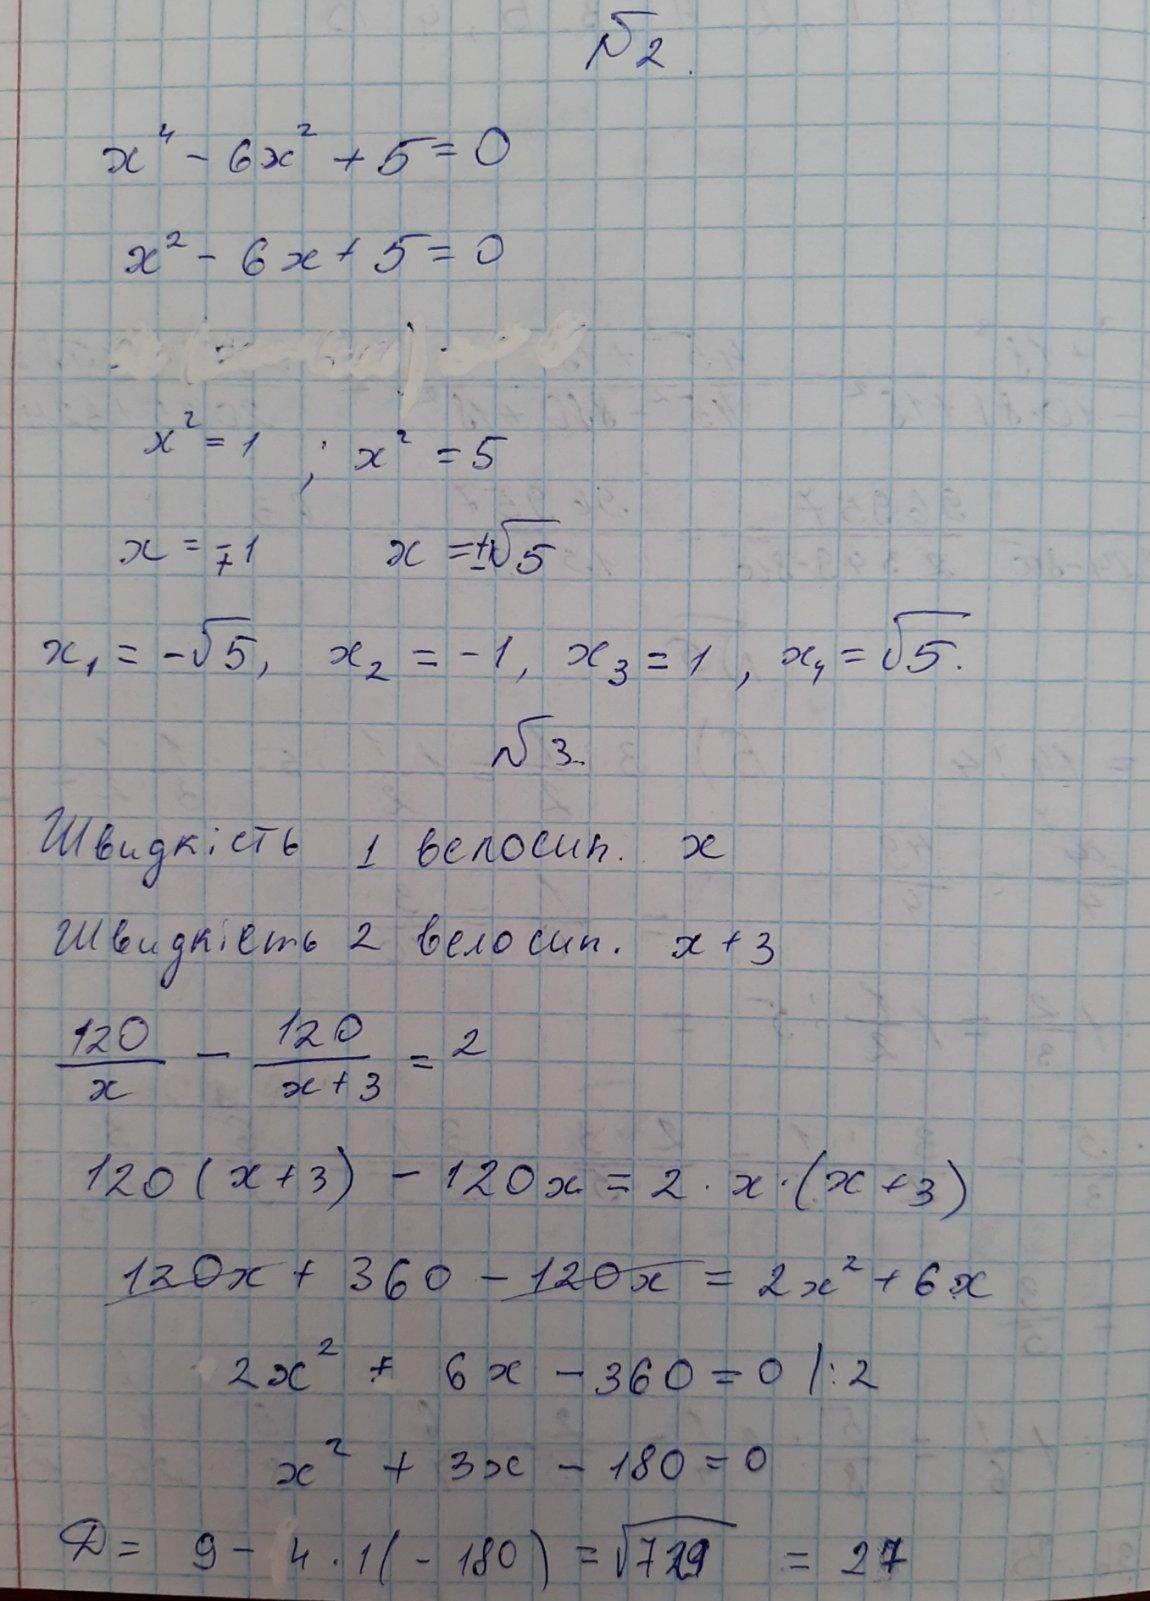 №2.
x⁴ - 6x² + 5 = 0
x² - 6x + 5 = 0
x² = 1 ; x² = 5
x = ∓1 x = ±√5
x₁ = -√5, x₂ = -1, x₃ = 1, x₄ = √5.
№3.
Швидкість 1 велосип. x
Швидкість 2 велосип. x + 3
120/x - 120/(x+3) = 2
120(x+3) - 120x = 2·x·(x+3)
120x + 360 - 120x = 2x² + 6x
2x² + 6x - 360 = 0 /:2
x² + 3x - 180 = 0
D = 9 - 4·1(-180) = √729 = 27